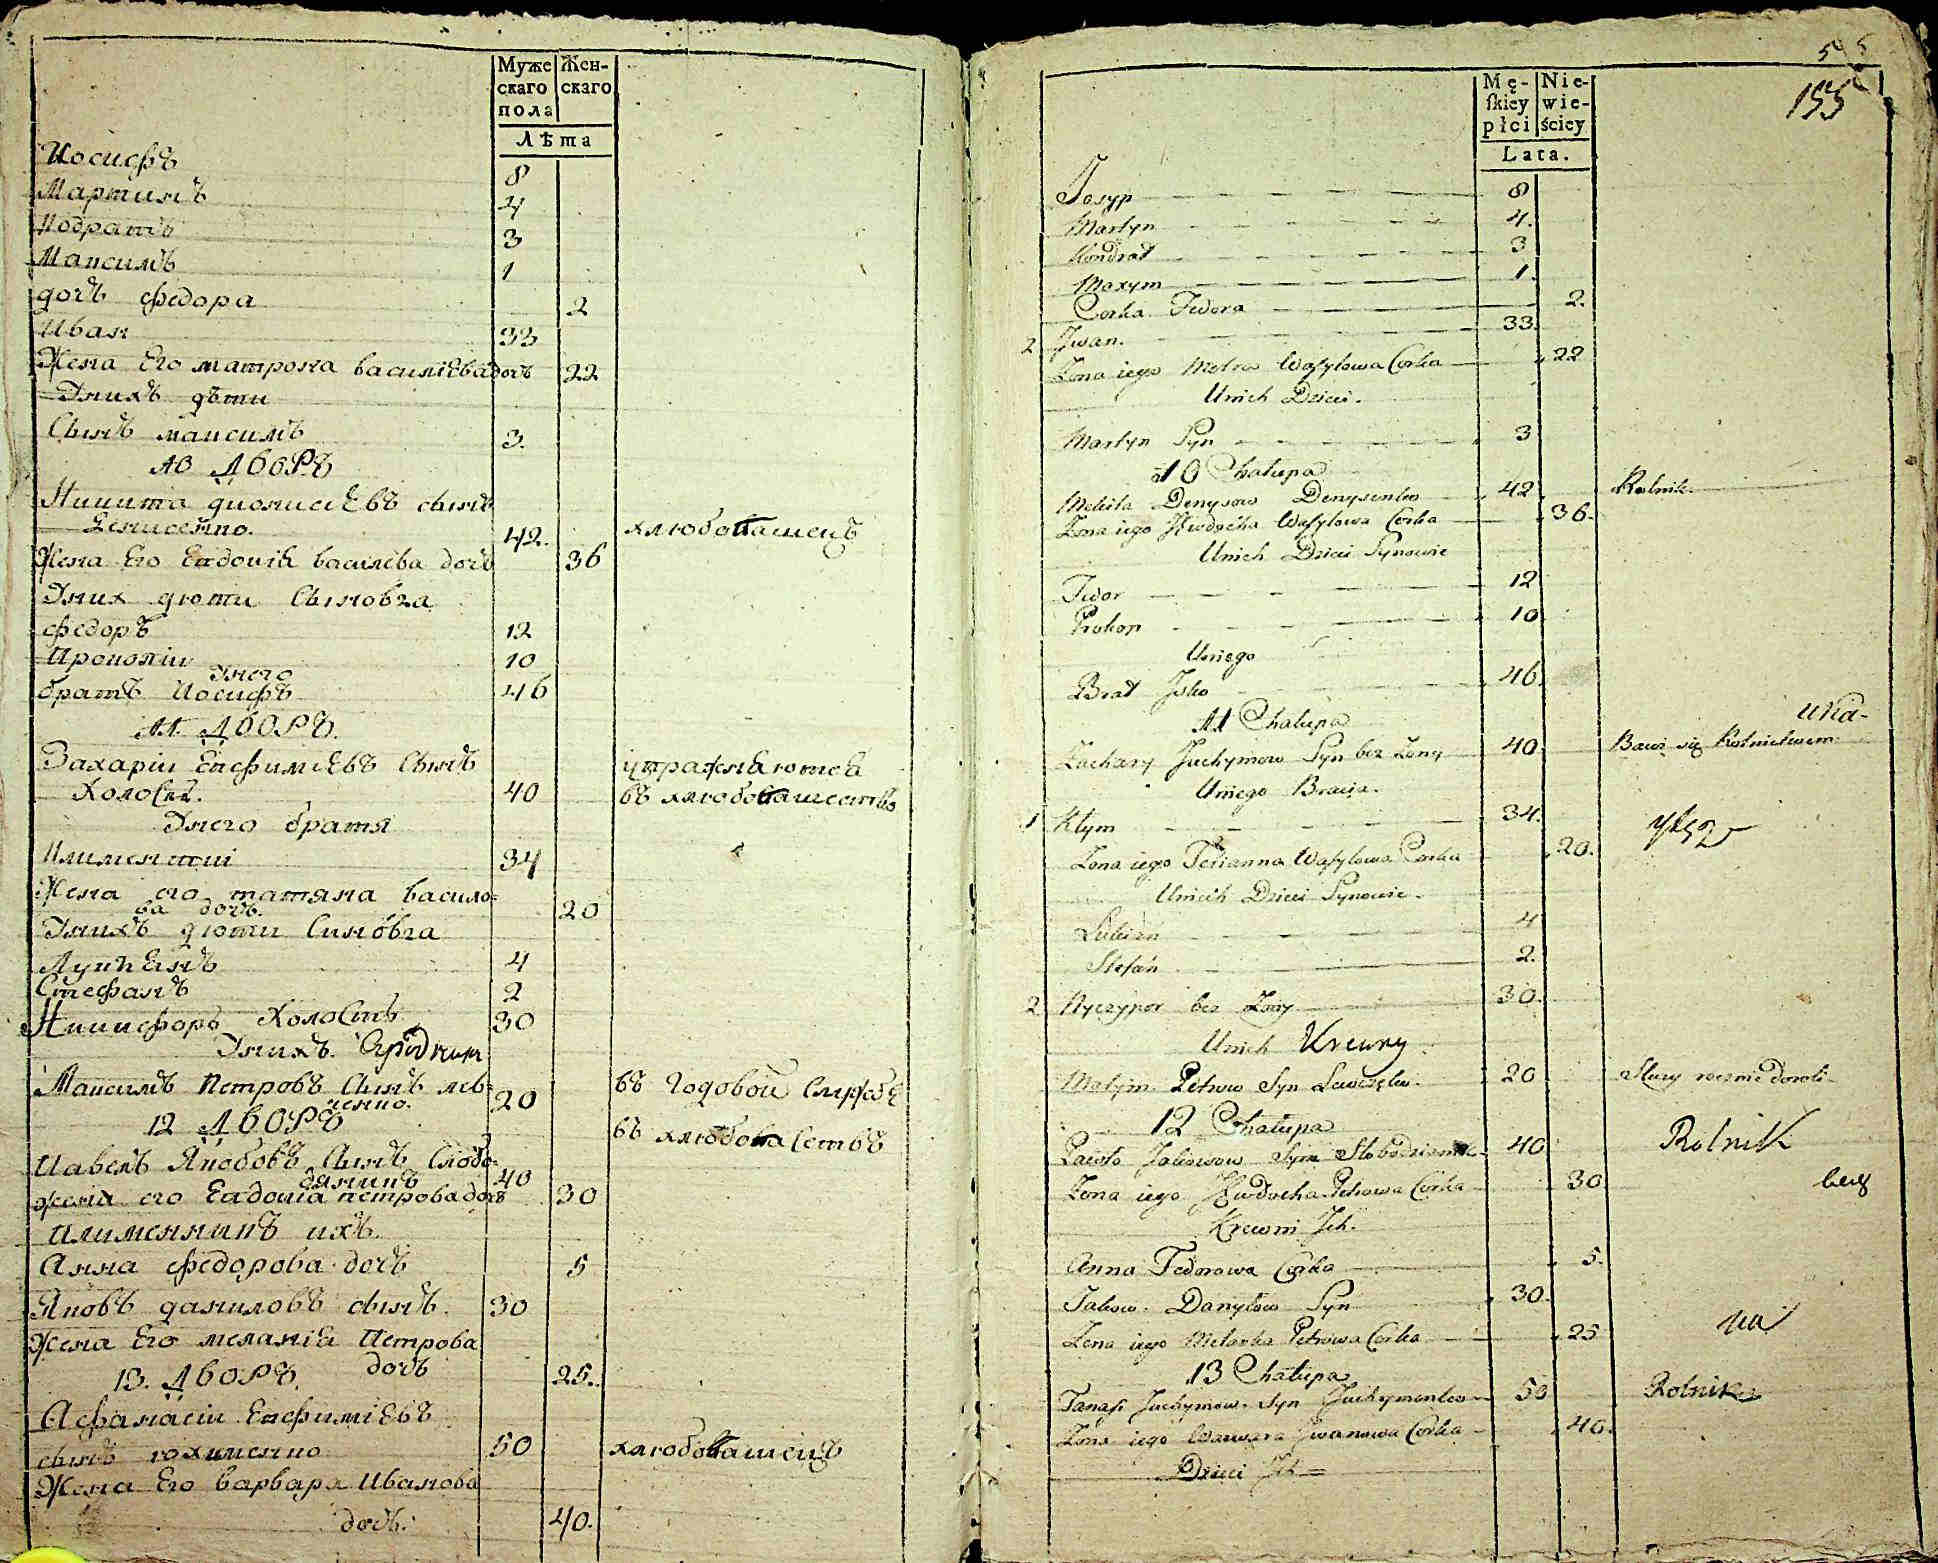 Муже
скаго
пола
Жен-
скаго
Лѣта
Иосифъ 8
Мартинъ 4
Кодратъ 3
Максимъ 1
дочъ федора 2
Иван 33
Жена Его матрона василіева дочь 22
Унихъ дѣти
Сынъ максимъ 3.
10 Дворъ
Никита дионисіевъ сынъ
Денисенко. 42. хлюбопашецъ
Жена Его Евдокія василева дочъ 36
Уних дюти Сыновъя
федоръ 12
Прокопіи 10
Унего
братъ Иосифъ 46
11. Дворъ.
Захаріи Евфиміевъ Сынъ упражняются
Холостъ. 40 въ хлюбопашество
Унего братя
Климентіи 34
Жена его татяна василю=
ва дочъ. 20
Унихъ дюти Синовъя
Лукъянъ 4
Стефанъ 2
Никифоръ Холостъ 30
Унихъ. Сродники
Максимъ Петровъ Сынъ лев=
ченко. 20 въ Годовои Службе
12 Дворъ въ хлюбопаствъ
Павелъ Якововъ Сынъ Слобо=
дянинъ 40
жена его Евдокіа петрова дочъ 30
племенникъ ихъ.
Анна федорова дочъ 5
Яковъ даниловъ сынъ. 30
Жена Его меланія Петрова
дочъ 25.
13. Дворъ.
Афанасіи Евфиміевъ
сынъ юхименко 50 хлюбопашецъ
Жена Его варвара Иванова
дочъ. 40.
5 5
155
Mę-
skiey
płci
Nie-
wie-
ściey
Lata.
Josyp 8
Martyn 4.
Kondrat 3
Maxym 1.
Corka Fedora 2.
2 Jwan. 33.
Zona iego Motra Wasylowa Corka 22
Unich Dzieci.
Martyn Syn 3
10 Chałupa
Mekita Denysow Denysenko 42 Rolnik
Zona iego Jewdocha Wasylowa Corka 36.
Unich Dzieci Synowie
Fedor 12
Prokop 10
Uniego
Brat Jsko 46.
11 Chałupa
Zachary Juchymow Syn bez Zony 40 Bawi się Rolnictwem
Uniego Bracia.
1 Kłym 34.
Zona iego Tetianna Wasylowa Corka 20.
Unich Dzieci Synowie.
Łukian 4
Stefan 2.
2 Nyczypor bez Zony 30.
Unich Krewny
Maxym Petrow Syn Lewczenko. 20 Słuzy rocznie
12 Chałupa
Pawło Jakowow Syn Słobodzianik 40 Rolnik
Zona iego Jewdocha Petrowa Corka 30
Krewni Jch.
Anna Fedorowa Corka 5.
Jakow. Danyłow Syn 30.
Zona iego Melanka Petrowa Corka 25
13 Chałupa
Tanasi Juchymow Syn Juchymenko 50 Rolnik
Zona iego Warwara Jwanowa Corka 40.
Dzieci Jch